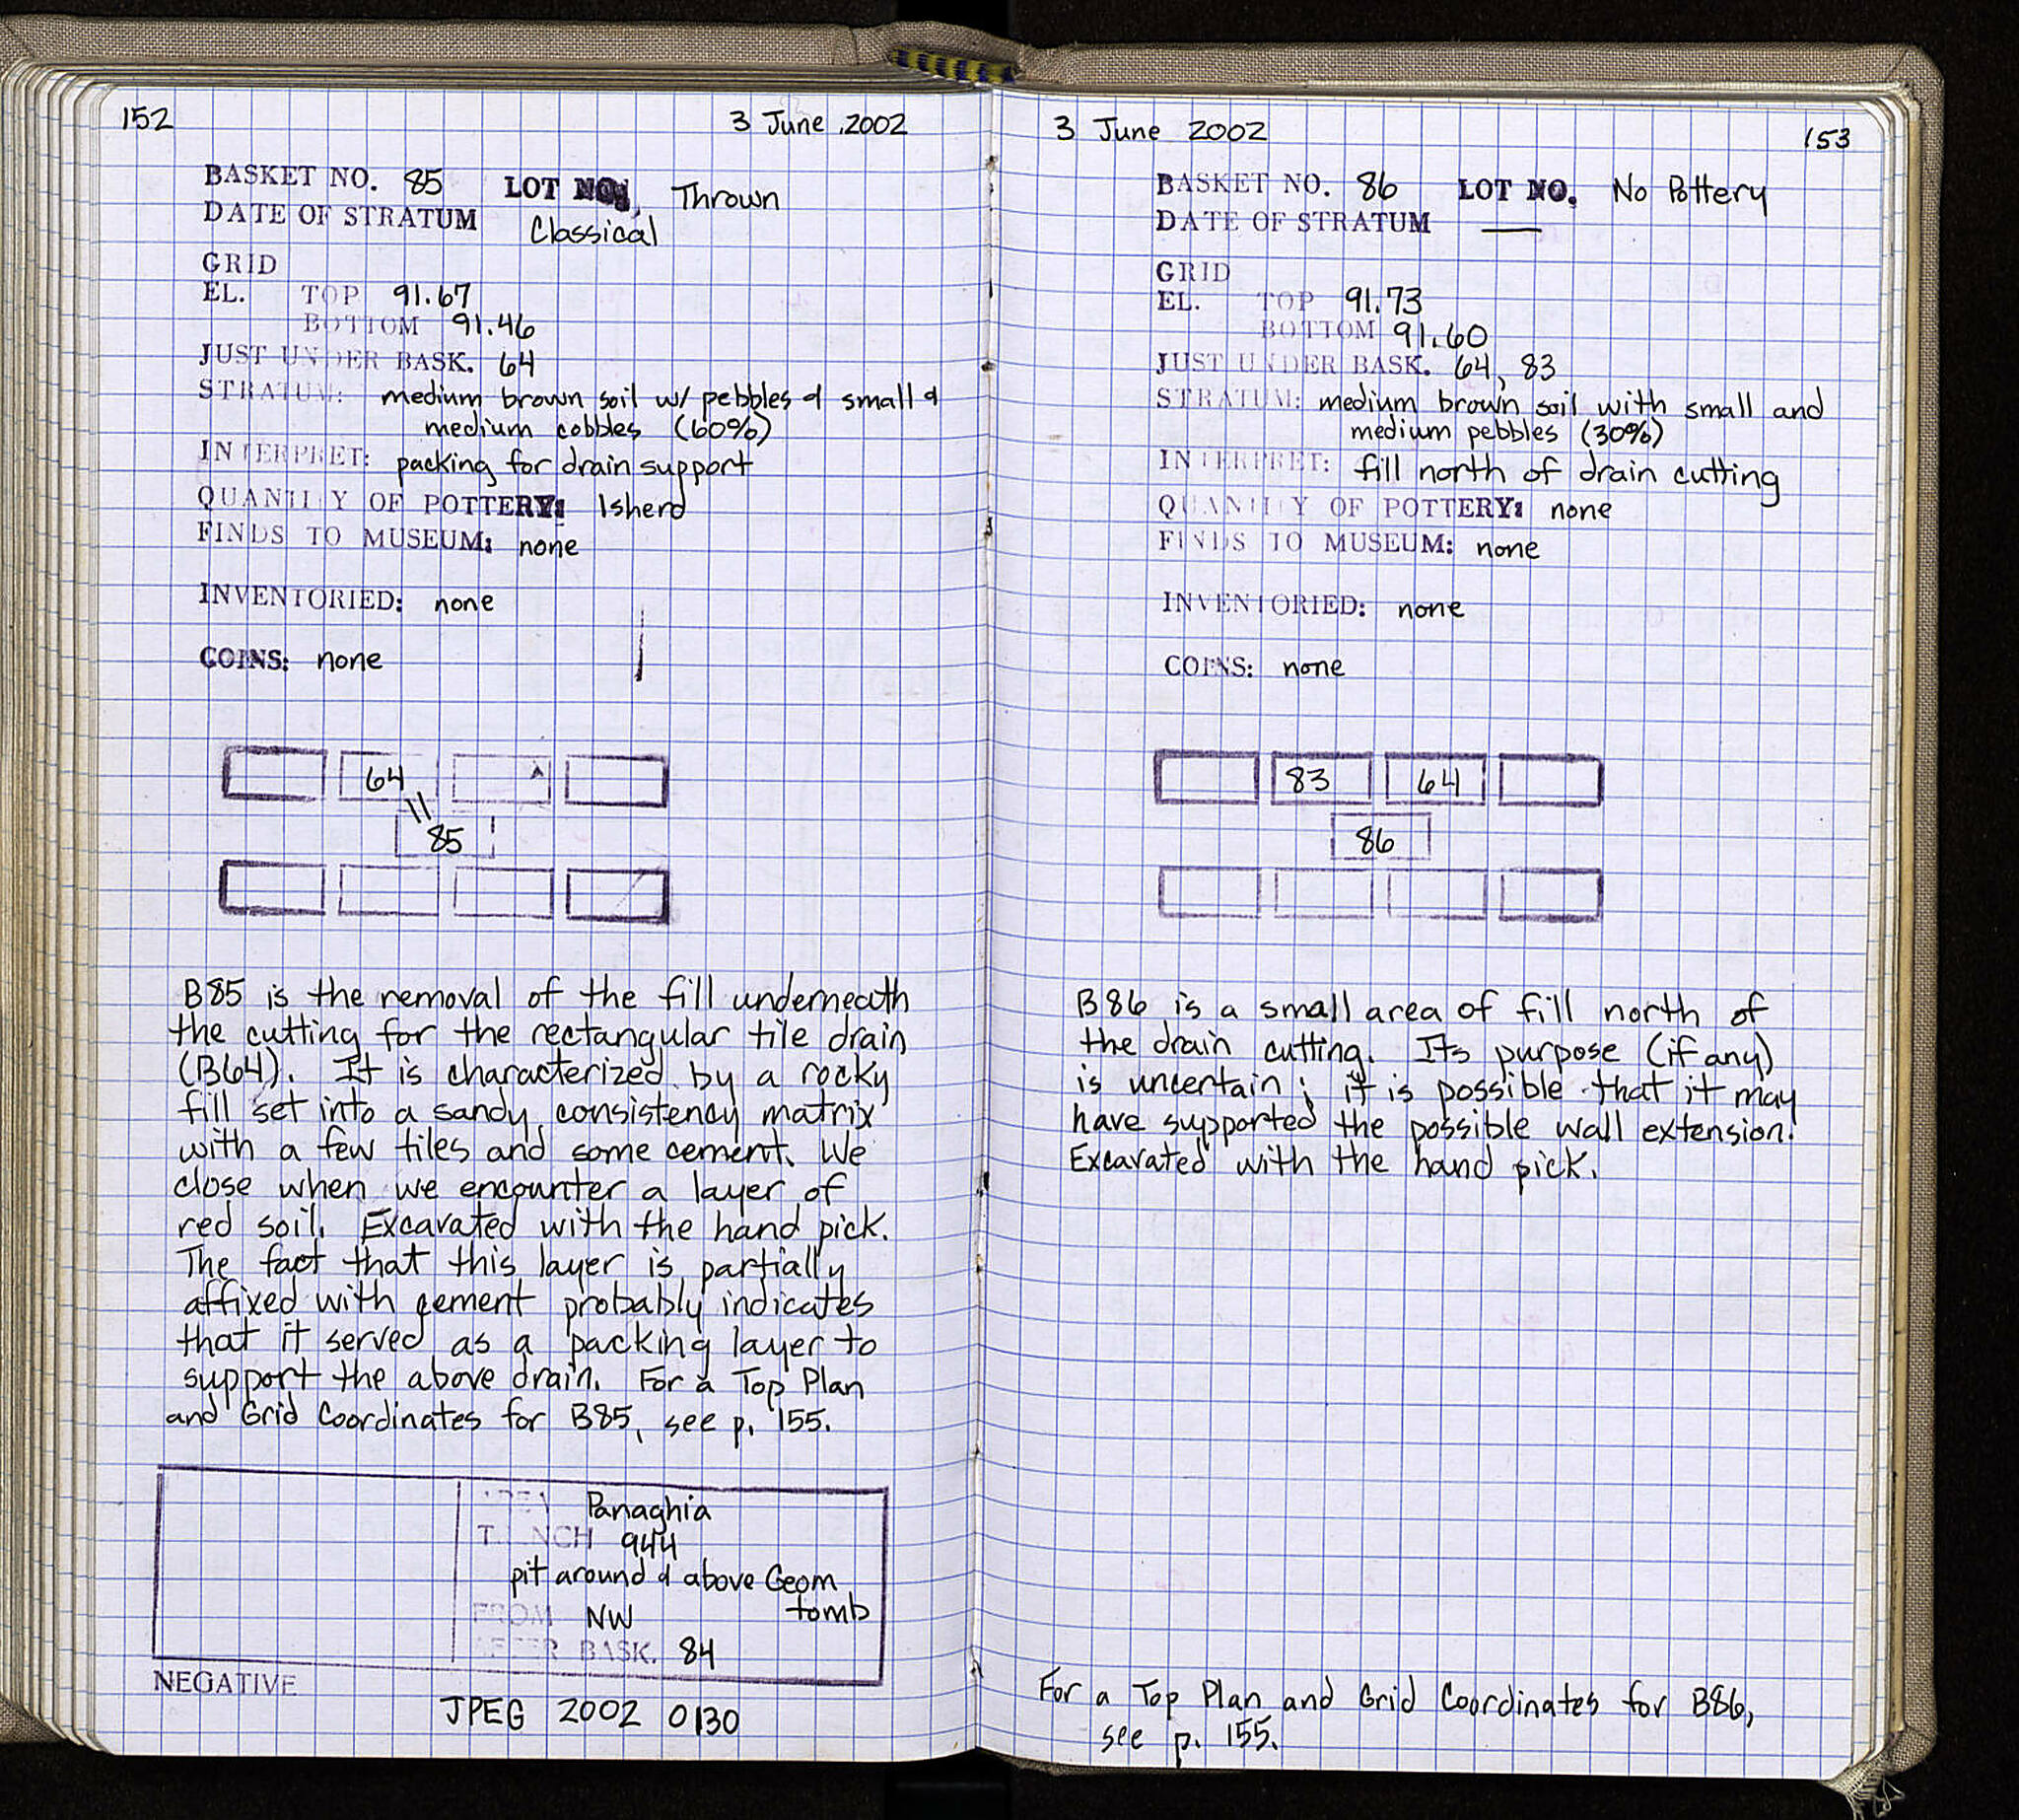 152
3 June 2002
BASKET NO. 85 LOT NO. Thrown
DATE OF STRATUM Classical
GRID
EL. TOP 91.67
BOTTOM 91.46
JUST UNDER BASK. 64
STRATUM: medium brown soil w/ pebbles & small &
medium cobbles (60%)
INTERPRET: packing for drain support
QUANTITY OF POTTERY: 1 sherd
FINDS TO MUSEUM: none
INVENTORIED: none
COINS: none
64
85
B85 is the removal of the fill underneath
the cutting for the rectangular tile drain
(B64). It is characterized by a rocky
fill set into a sandy consistency matrix
with a few tiles and some cement. We
close when we encounter a layer of
red soil. Excavated with the hand pick.
The fact that this layer is partially
affixed with cement probably indicates
that it served as a packing layer to
support the above drain. For a Top Plan
and Grid Coordinates for B85, see p. 155.
AREA Panaghia
TRENCH 944
pit around & above Geom
tomb
FROM NW
AFTER BASK. 84
NEGATIVE
JPEG 2002 0130
3 June 2002
153
BASKET NO. 86 LOT NO. No Pottery
DATE OF STRATUM —
GRID
EL. TOP 91.73
BOTTOM 91.60
JUST UNDER BASK. 64, 83
STRATUM: medium brown soil with small and
medium pebbles (30%)
INTERPRET: fill north of drain cutting
QUANTITY OF POTTERY: none
FINDS TO MUSEUM: none
INVENTORIED: none
COINS: none
83 64
86
B86 is a small area of fill north of
the drain cutting. Its purpose (if any)
is uncertain; it is possible that it may
have supported the possible wall extension.
Excavated with the hand pick.
For a Top Plan and Grid Coordinates for B86,
see p. 155.